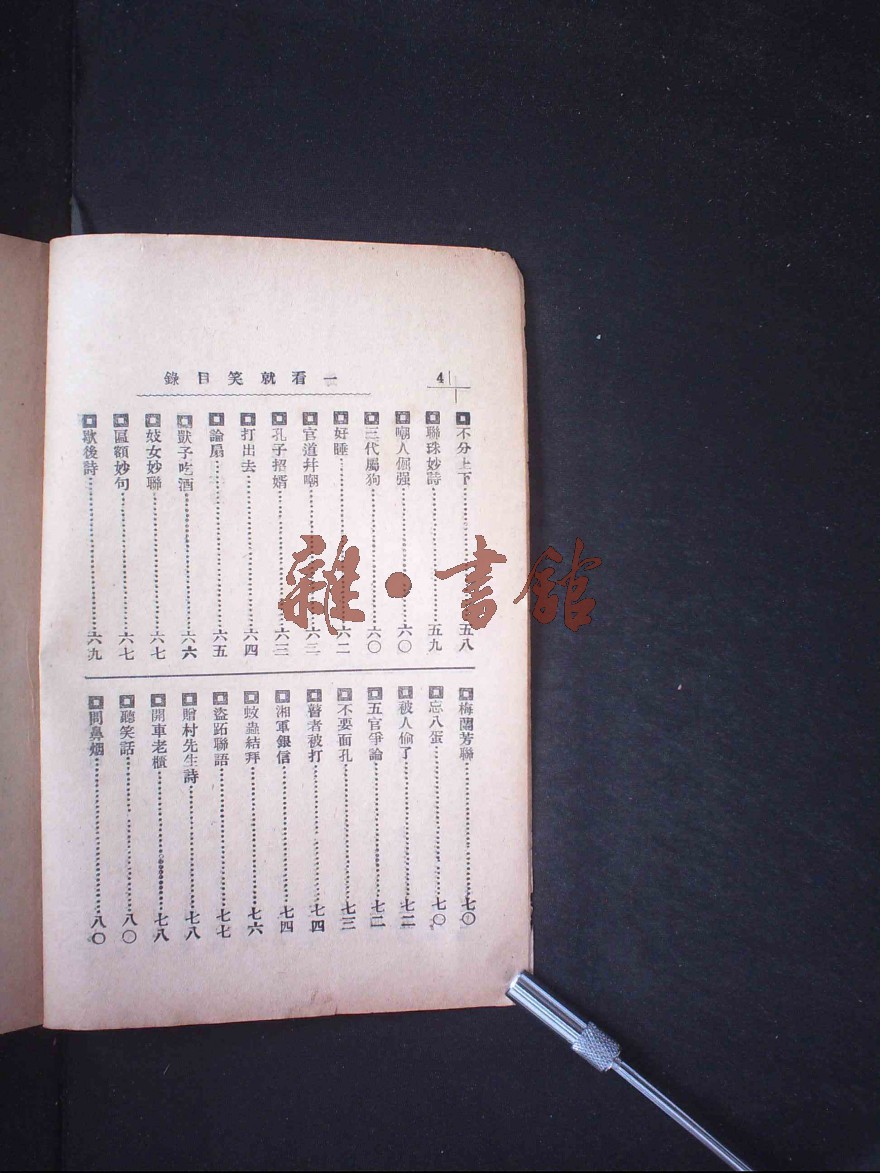 一看就笑目錄
4
不分上下 五八
聯珠妙詩 五九
嘲人倔强 六〇
三代屬狗 六〇
好睡 六二
官道井嘲 六三
孔子招婿 六三
打出去 六四
論扇 六五
獃子吃酒 六六
妓女妙聯 六七
匾額妙句 六七
歇後詩 六九
梅蘭芳聯 七〇
忘八蛋 七〇
被人偷了 七二
五官爭論 七二
不要面孔 七三
瞽者被打 七四
湘軍銀信 七四
蚊蟲結拜 七六
盜跖聯語 七七
贈村先生詩 七八
開車老櫃 七八
聽笑話 八〇
聞鼻烟 八〇
雜·書館